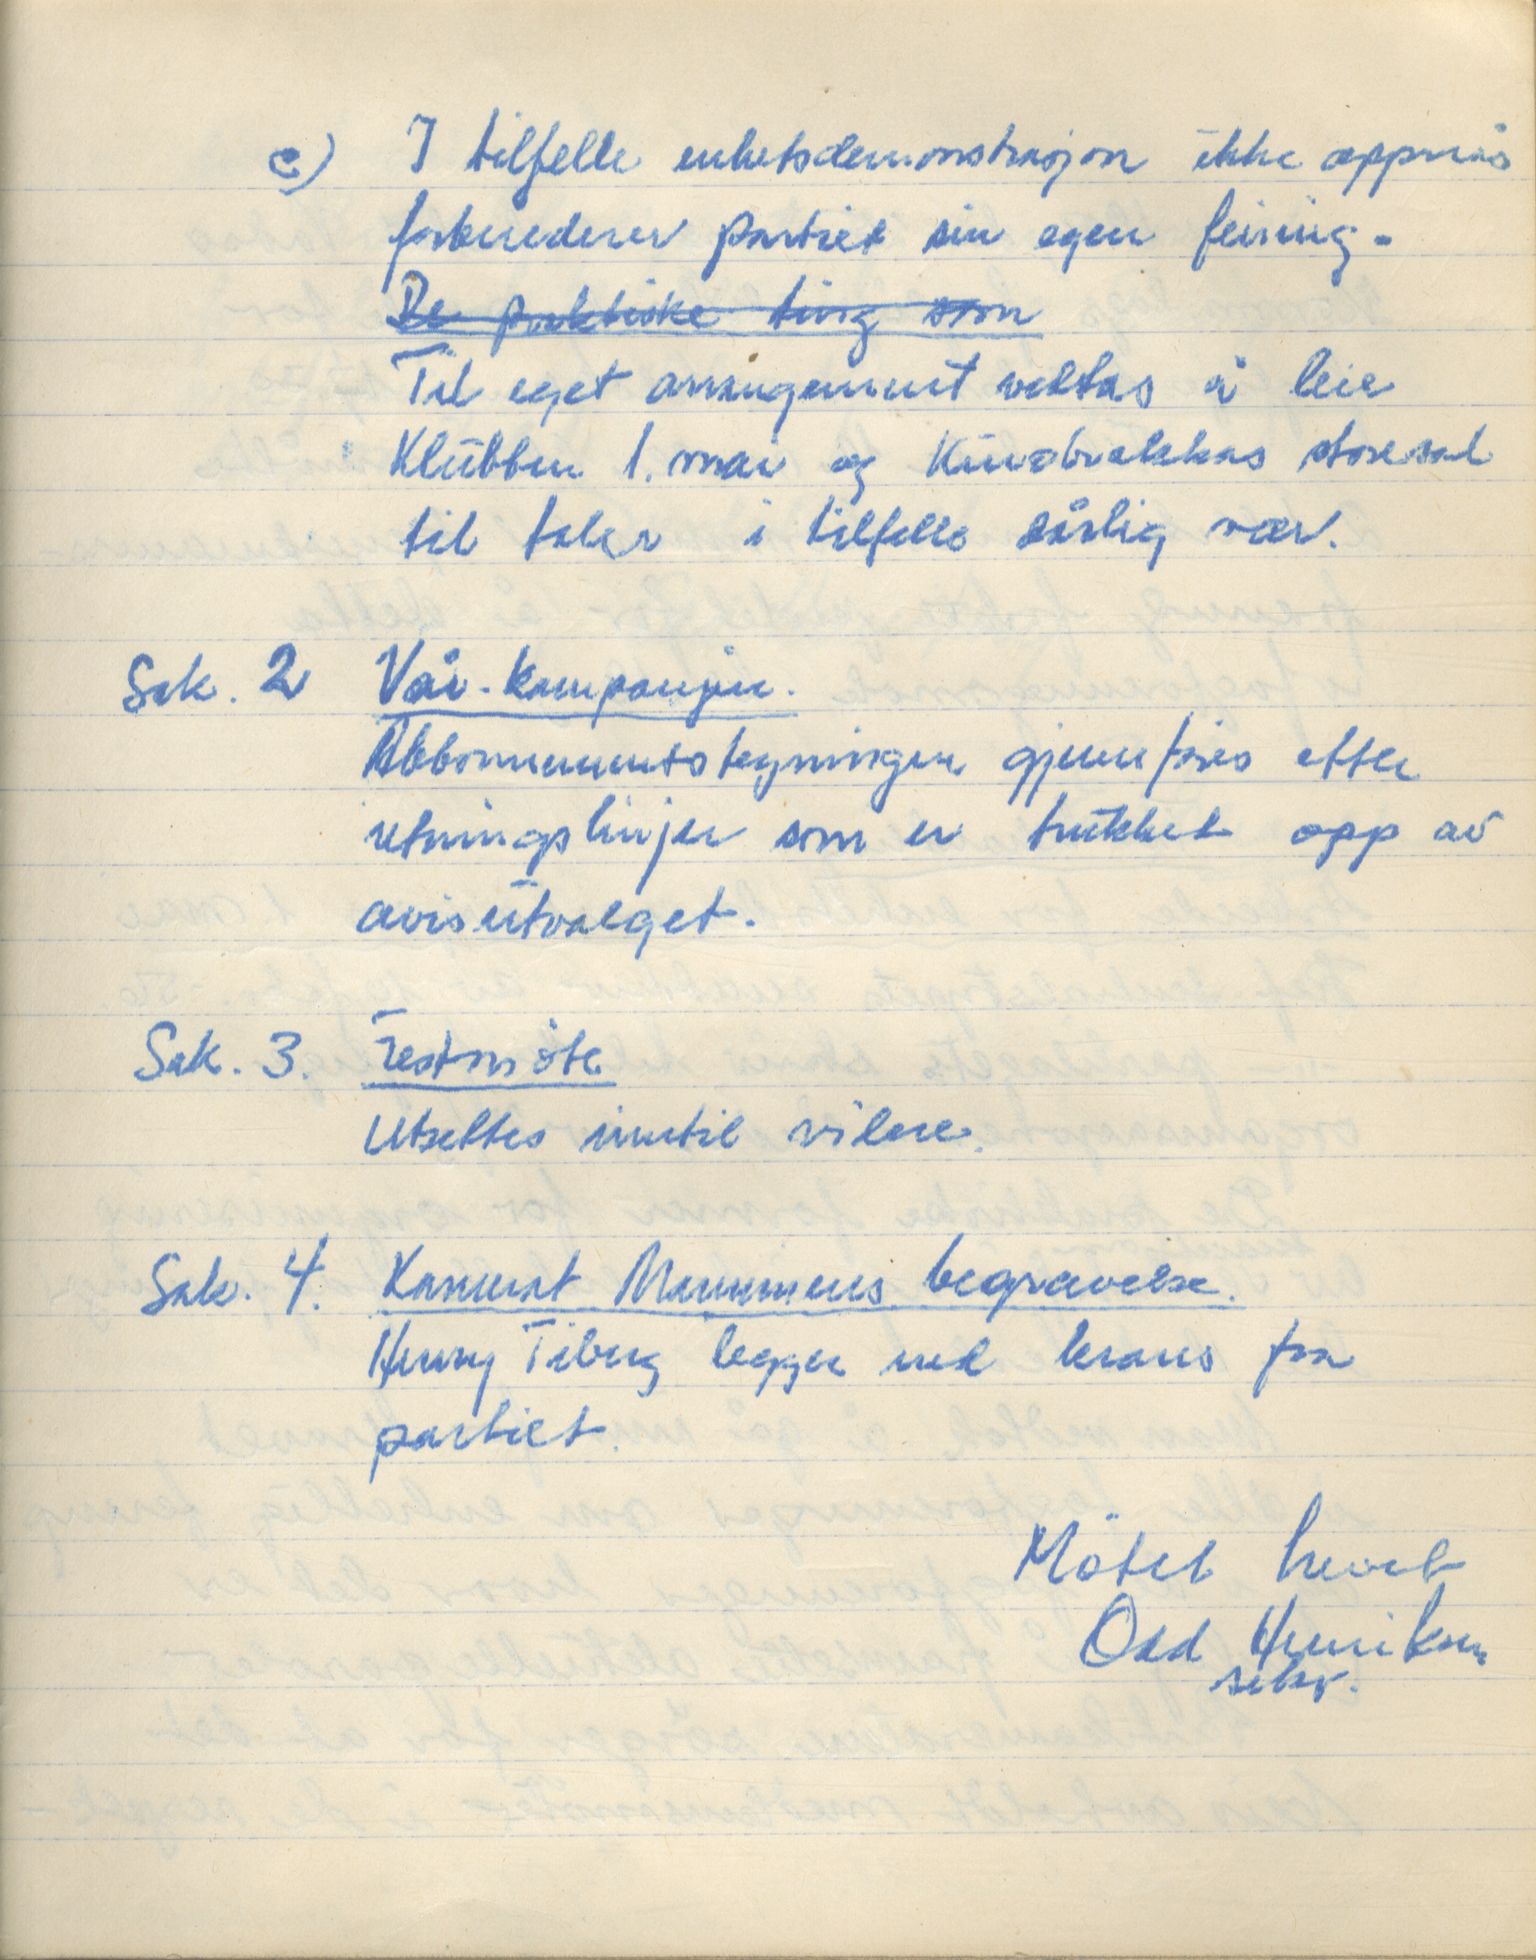 c) I tilfelle enhetsdemonstrasjon ikke oppnås
forbereder partiet sin egen feiring.
De praktiske ting som
Til eget arrangement vedtas å leie
Klubben 1. mai og Kinobrakkas storesal
til taler i tilfelle dårlig vær.
Sak. 2 Vår-kampanjen.
Abbonnementstegningen gjennføres etter
retningslinjer som er trukket opp av
avisutvalget.
Sak. 3. Festmöte
Utsettes inntil videre.
Sak. 4. Kamerat Mamens begravelse.
Henry Tiberg legger ned krans fra
partiet.
Mötet hevet
Odd Henriksen
sekr.